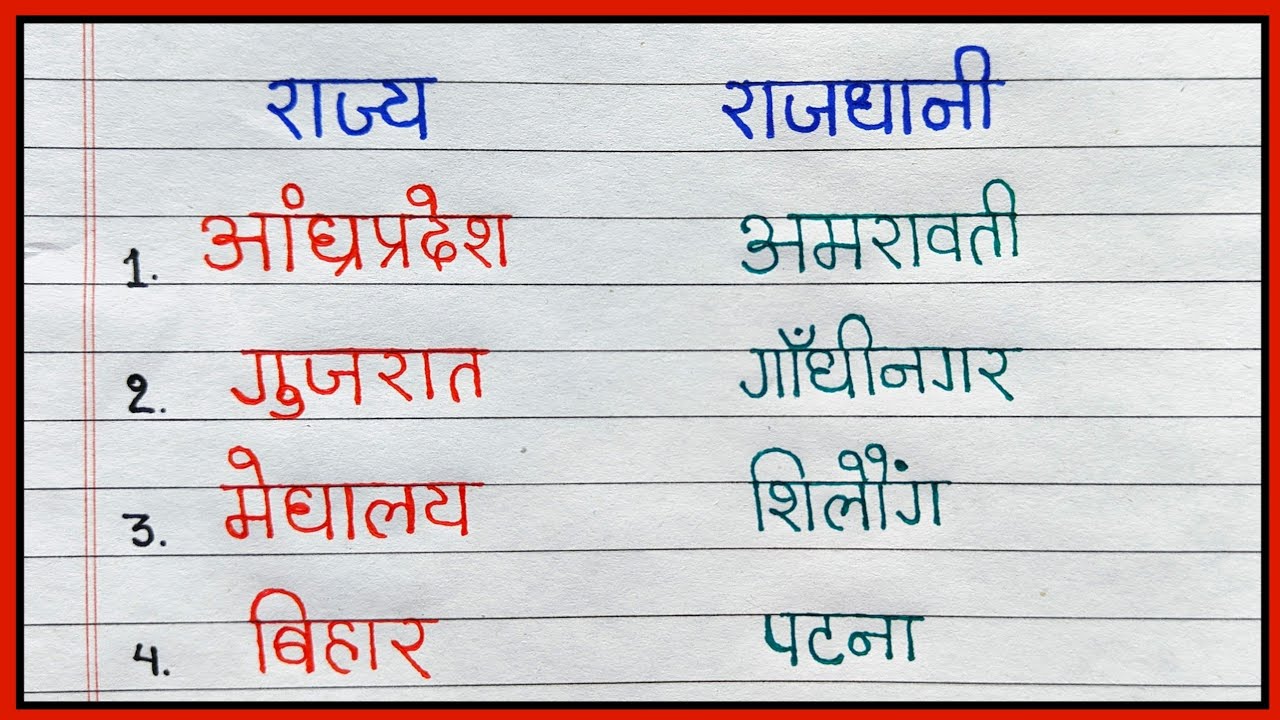 राज्य राजधानी
1. आंध्रप्रदेश अमरावती
2. गुजरात गाँधीनगर
3. मेघालय शिलौंग
4. बिहार पटना